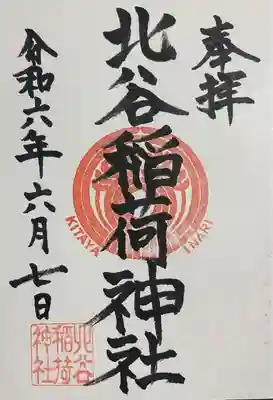 奉拝
北谷稲荷神社
KITAYA INARI
令和六年六月七日
北谷
稲荷
神社